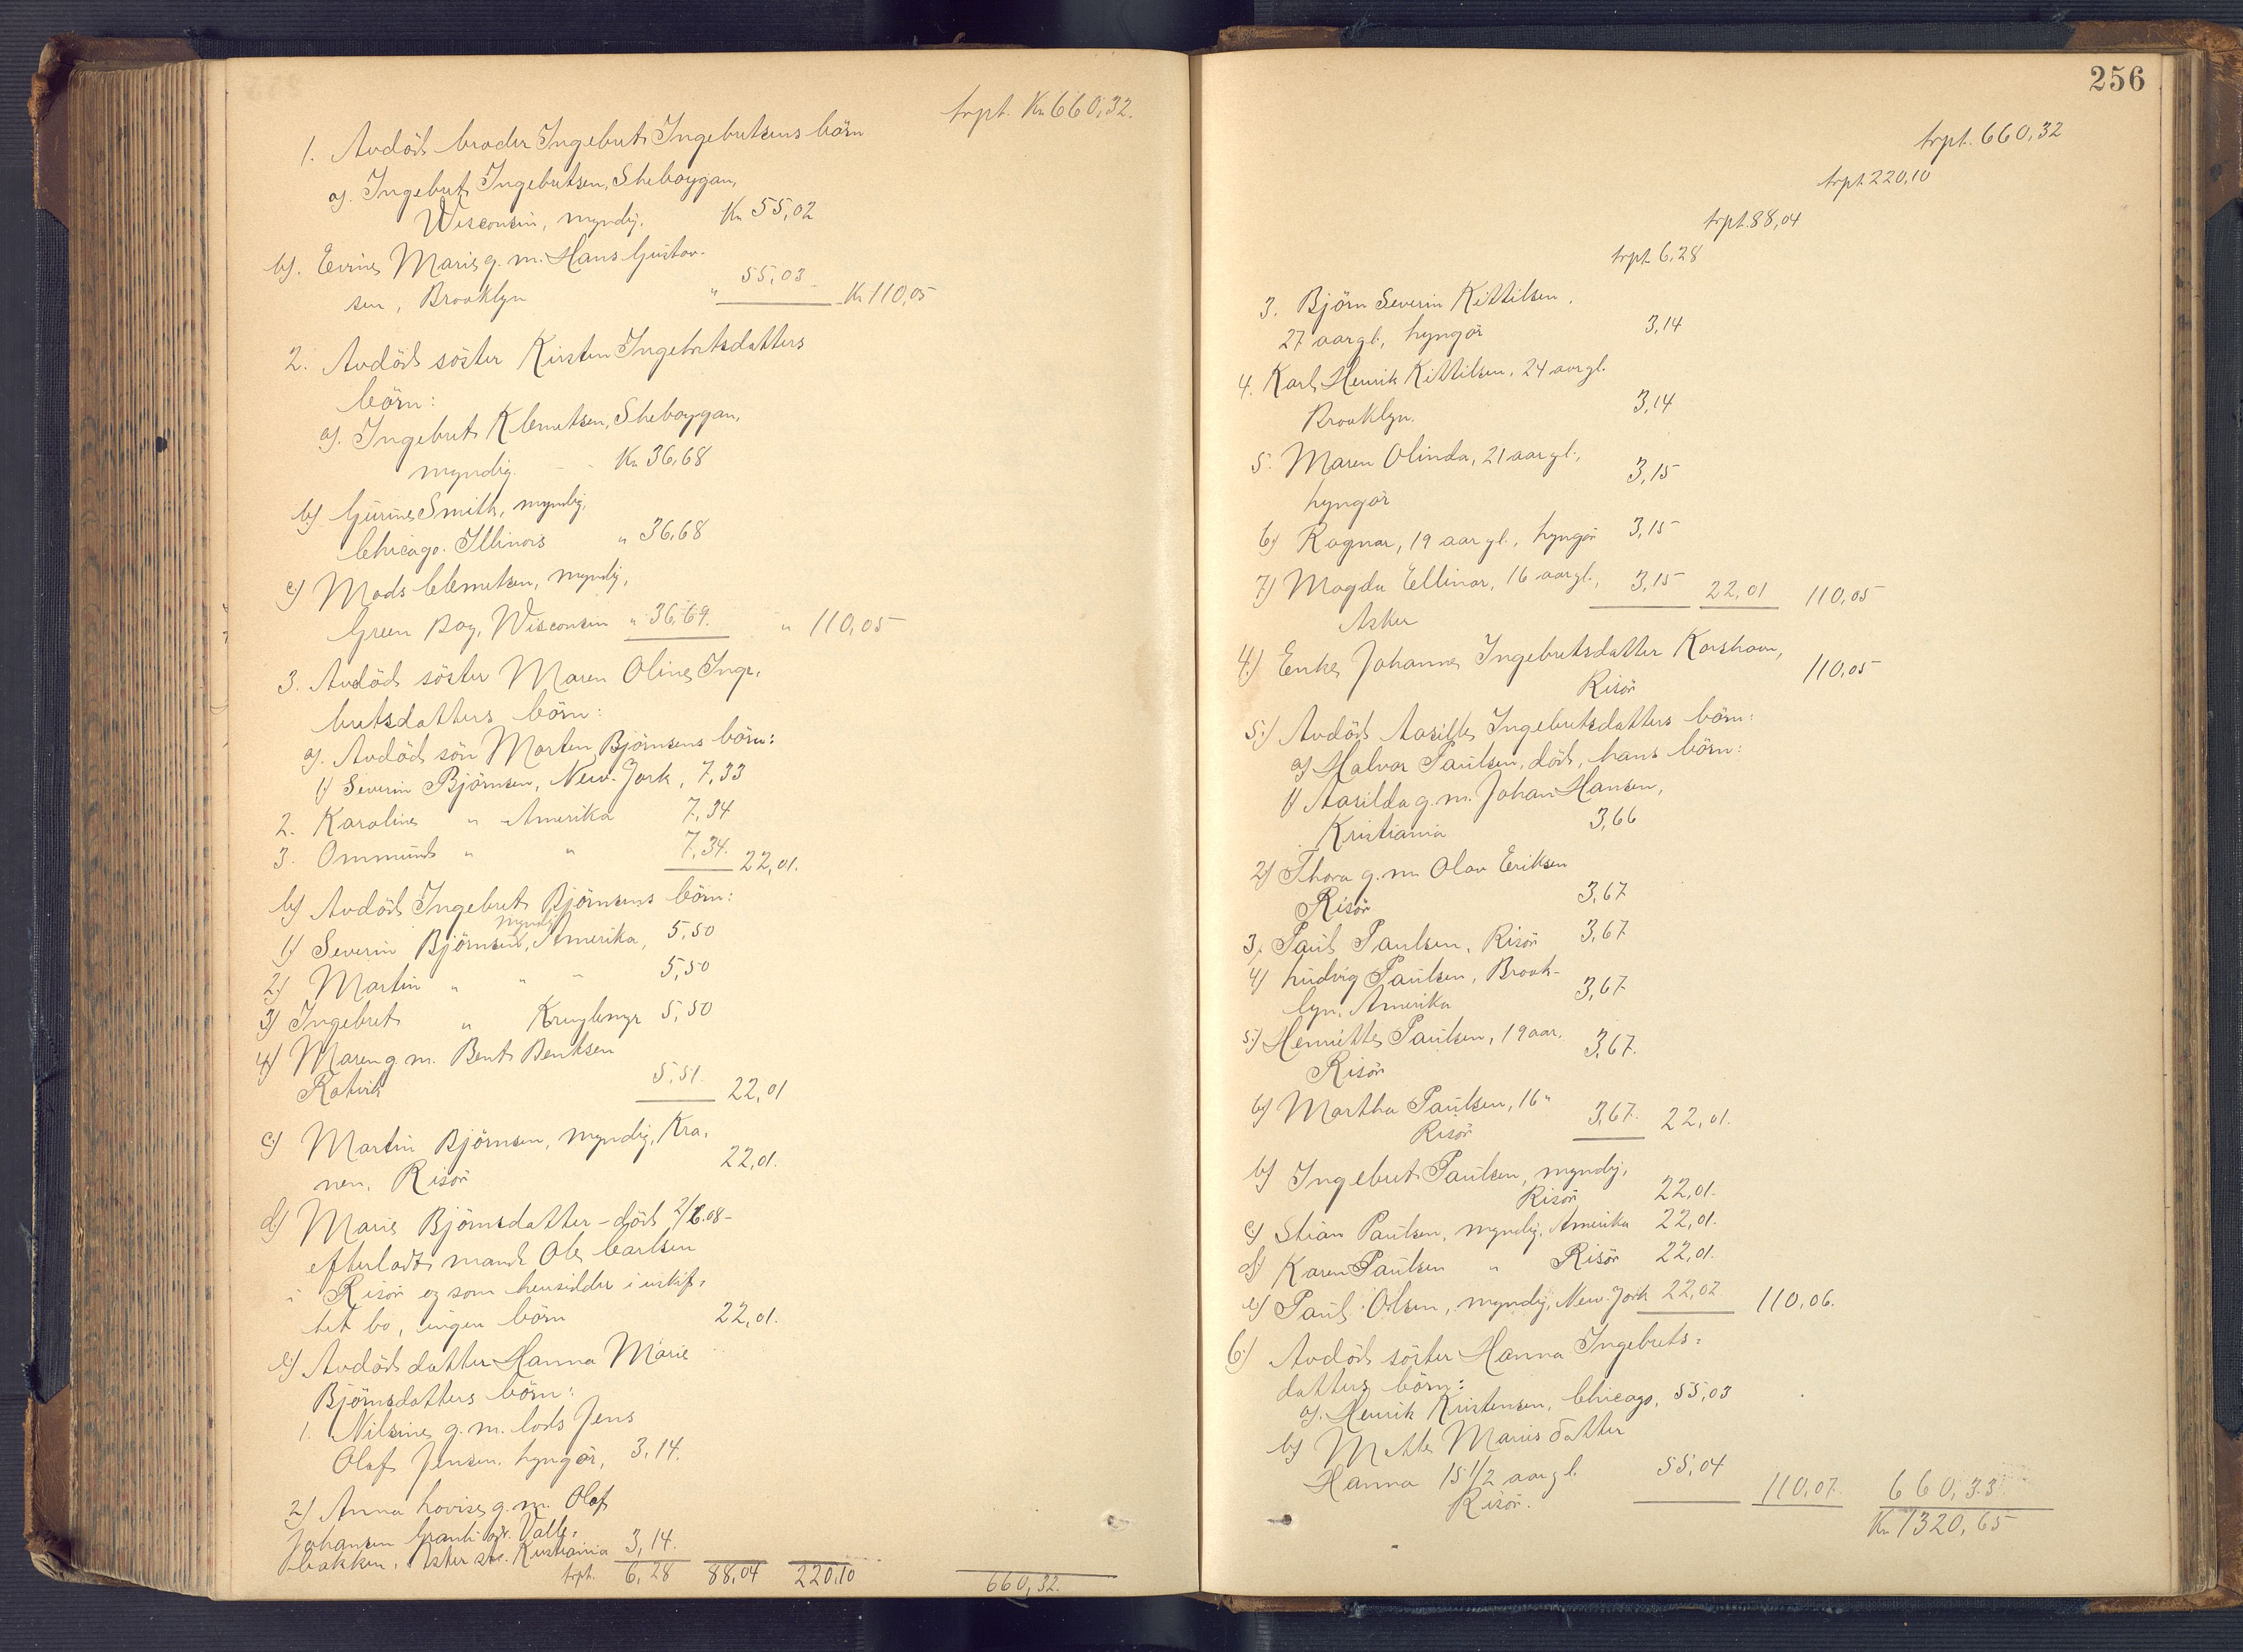 trpt. Kr 660,32.
1. Avdöd broder Ingebret Ingebretsens börn
a). Ingebret Ingebretsen, Sheboygan,
Wisconsin, myndig. Kr 55,02
b). Evine Marie g. m. Hans Gustav-
sen, Brooklyn " 55,03 Kr 110,05
2. Avdöd söster Kirsten Ingebretsdatters
börn:
a). Ingebret Klemetsen, Sheboygan,
myndig. Kr 36,68
b) Gurine Smith, myndig,
Chicago. Illinois " 36,68
c) Mads Clemetsen, myndig,
Green Bay, Wisconsin " 36,69. " 110,05
3. Avdöd söster Maren Oline Inge-
bretsdatters börn:
a). Avdöd sön Morten Björnsens börn:
1) Severin Björnsen, New-York, 7,33
2. Karoline " Amerika 7,34
3. Ommund " " 7,34. 22,01.
b) Avdöd Ingebret Björnsens börn:
myndig
1) Severin Björnsen, Amerika, 5,50
2) Martin " " - 5,50
3) Ingebret " 5,50
4) Maren g. m. Bent Bentsen
5,51. 22,01
c) Martin Björnsen, myndig, Kra-
nen, Risör 22,01.
d) Marie Björnsdatter - död 2/6.08 -
efterladt mand Ole Carlsen
i Risör og som hensidder i uskif-
tet bo, ingen börn 22,01.
e) Avdöd datter Hanna Marie
Björnsdatters börn:
1. Nilsine g. m. lods Jens
Olaf Jensen. Lyngör, 3,14.
2) Anna Lovise g. m. Olaf
Johansen Valle-
bakken, Asker Kristiania 3,14.
trpt. 6,28 88,04 220,10 660,32.
256
trpt. 660,32
trpt 220,10
trpt. 88,04
trpt 6,28
3. Björn Severin Kittilsen,
27 aar gl., Lyngör 3,14
4. Karl Henrik Kittilsen, 24 aar gl.
Brooklyn. 3,14
5. Maren Olinda, 21 aar gl.,
Lyngör 3,15
6) Ragnar, 19 aar gl., Lyngör 3,15
7) Magda Ellinor, 16 aar gl., 3,15 22,01 110,05
Asker
4.) Enke Johanne Ingebretsdatter Korshavn,
Risör 110,05
5.) Avdöd Aasille Ingebretsdatters börn:
a) Halvor Paulsen, död, hans börn:
1) Aasilda g. m. Johan Hansen,
Kristiania 3,66
2) Thora g. m. Olav Eriksen
Risör 3,67
3, Paul Paulsen, Risör 3,67
4) Ludvig Paulsen, Brook-
lyn, Amerika 3,67
5) Henriette Paulsen, 19 aar.
Risör 3,67.
6) Martha Paulsen, 16 "
Risör 3,67. 22,01.
b) Ingebret Paulsen, myndig,
Risör 22,01.
c) Stian Paulsen, myndig, Amerika 22,01.
d) Karen Paulsen " Risör 22,01.
e) Paul Olsen, myndig, New-York 22,02 110,06.
6.) Avdöd söster Hanna Ingebrets=
datters börn:
a). Henrik Kristensen, Chicago, 55,03
b) Mette Maries datter
Hanna 15 1/2 aar gl. 55,04 110,07. 660,33
Risör. Kr 1320,65